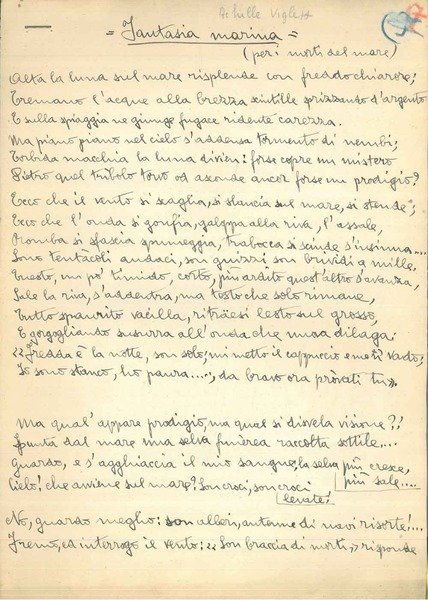 Achille Viglett
= Fantasia marina =
(per i morti del mare)
Alta la luna sul mare risplende con freddo chiarore;
Tremano l'acque alla brezza scintille sprizzando d'argento
E sulla spiaggia ne giunge fugace ridente carezza.
Ma piano piano nel cielo s'addensa tormento di nembi,
Torbida macchia la luna divien: forse copre un mistero
Dietro quel tribolo ed asconde ancor forse un prodigio?
Ecco che il vento si scaglia, si slancia sul mare, si stende;
Ecco che l'onda si gonfia, galoppa alla riva, l'assale,
Piomba si sfascia spumeggia, trabocca si scinde s'insinua....
Sono tentacoli audaci, son guizzi son brividi a mille.
Questo, un po' timido, corto, più ardito quest'altro s'avanza,
Sale la riva, s'addentra, ma tosto che solo rimane,
Tutto spaurito vacilla, ritraesi lesto sul grosso,
E gorgogliando susurra all'onda che nuova dilaga:
"Fredda è la notte, son solo; mi metto il cappuccio e me ti vado;
Io sono stanco, ho paura...., da bravo ora pròvati tu".
Ma qual'appare prodigio, ma qual si disvela visione?!
Spunta dal mare una selva funèrea raccolta sottile....
Guardo, e s'agghiaccia il mio sangue, la selva più cresce,
più sale....
Cielo! che avviene sul mare? Son croci, son croci
levate!
No, guardo meglio: son alberi, antenne di navi risorte!...
Fremo, ed interrogo il vento: "Son braccia di morti," risponde